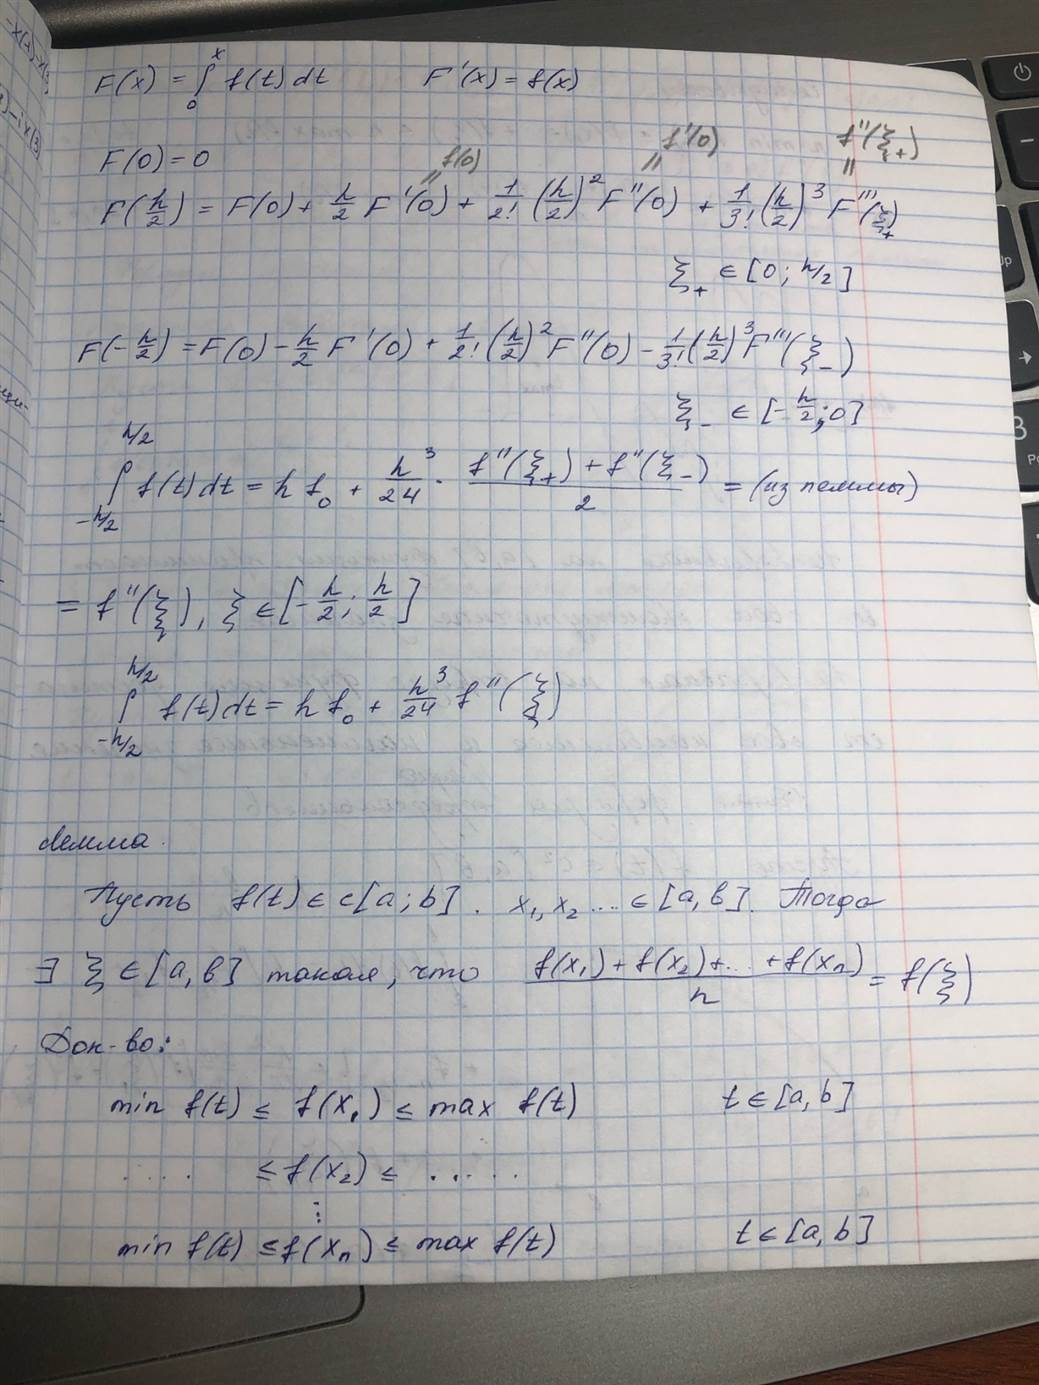 F(x) = ∫₀ˣ f(t) dt F'(x) = f(x)
F(0) = 0 f(0) f'(0) f''(ξ₊)
F(h/2) = F(0) + h/2 F'(0) + 1/2! (h/2)² F''(0) + 1/3! (h/2)³ F'''(ξ₊)
ξ₊ ∈ [0; h/2]
F(-h/2) = F(0) - h/2 F'(0) + 1/2! (h/2)² F''(0) - 1/3! (h/2)³ F'''(ξ₋)
ξ₋ ∈ [-h/2; 0]
∫_{-h/2}^{h/2} f(t) dt = h f₀ + h³/24 · (f''(ξ₊) + f''(ξ₋))/2 = (из леммы)
= f''(ξ), ξ ∈ [-h/2; h/2]
∫_{-h/2}^{h/2} f(t) dt = h f₀ + h³/24 f''(ξ)
Лемма.
Пусть f(t) ∈ c[a; b]. x₁, x₂ ... ∈ [a, b]. Тогда
∃ ξ ∈ [a, b] такая, что (f(x₁) + f(x₂) + ... + f(xₙ))/n = f(ξ)
Док-во:
min f(t) ≤ f(x₁) ≤ max f(t) t ∈ [a, b]
.... ≤ f(x₂) ≤ .....
⋮
min f(t) ≤ f(xₙ) ≤ max f(t) t ∈ [a, b]